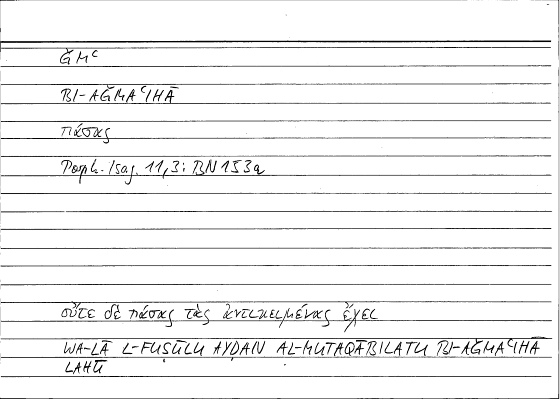 ǦMʿ
BI-AǦMAʿIHĀ
πάσας
Porph. Isag. 11,3: BN 153a
οὔτε δὲ πάσας τὰς ἀντικειμένας ἔχει
WA-LĀ L-FUṢŪLU AYḌAN AL-MUTAQĀBILATU BI-AǦMAʿIHĀ
LAHŪ